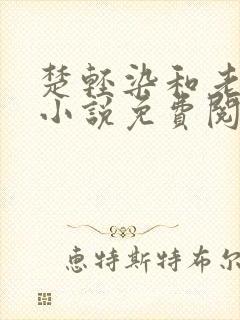 楚轻染和老
小说免费阅
惠特斯特布尔